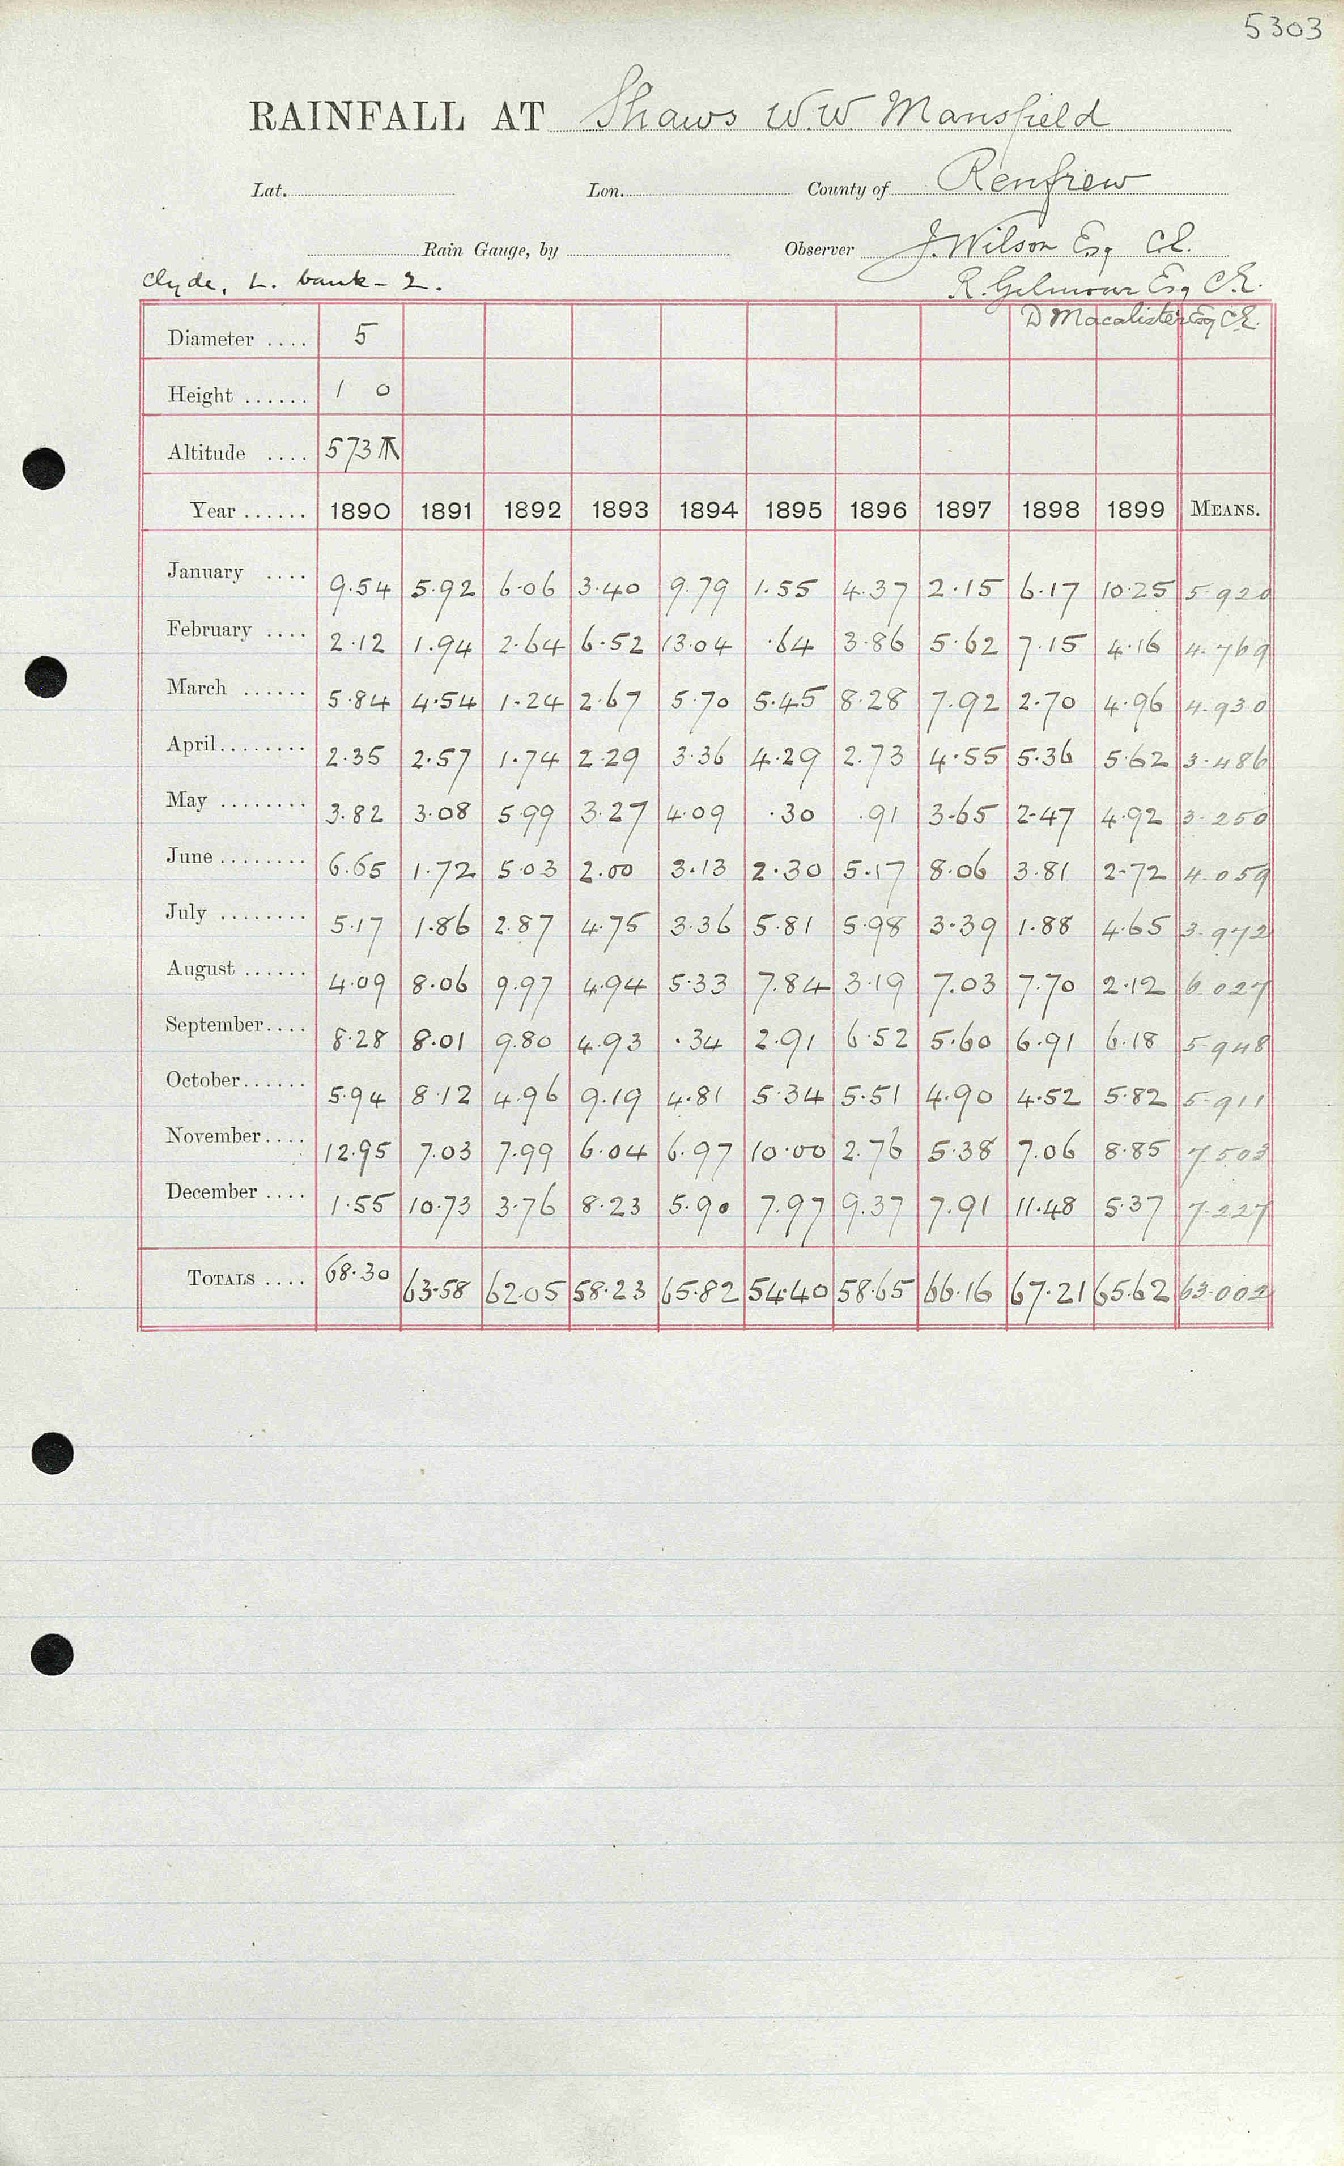 5303
RAINFALL AT Shaws W.W. Mansfield
Lat. Lon. County of Renfrew
Rain Gauge, by Observer J. Wilson Esq C.E.
Clyde, L. bank - 2. R. Gilmour Esq C.E.
D Macalister Esq C.E.
Diameter .... 5
Height ...... 1 0
Altitude .... 573
Year ...... 1890 1891 1892 1893 1894 1895 1896 1897 1898 1899 MEANS.
January .... 9.54 5.92 6.06 3.40 9.79 1.55 4.37 2.15 6.17 10.25 5.920
February .... 2.12 1.94 2.64 6.52 13.04 .64 3.86 5.62 7.15 4.16 4.769
March ...... 5.84 4.54 1.24 2.67 5.70 5.45 8.28 7.92 2.70 4.96 4.930
April........ 2.35 2.57 1.74 2.29 3.36 4.29 2.73 4.55 5.36 5.62 3.486
May ........ 3.82 3.08 5.99 3.27 4.09 .30 .91 3.65 2.47 4.92 3.250
June ........ 6.65 1.72 5.03 2.00 3.13 2.30 5.17 8.06 3.81 2.72 4.059
July ........ 5.17 1.86 2.87 4.75 3.36 5.81 5.98 3.39 1.88 4.65 3.972
August ...... 4.09 8.06 9.97 4.94 5.33 7.84 3.19 7.03 7.70 2.12 6.027
September.... 8.28 8.01 9.80 4.93 .34 2.91 6.52 5.60 6.91 6.18 5.948
October...... 5.94 8.12 4.96 9.19 4.81 5.34 5.51 4.90 4.52 5.82 5.911
November.... 12.95 7.03 7.99 6.04 6.97 10.00 2.76 5.38 7.06 8.85 7.503
December .... 1.55 10.73 3.76 8.23 5.90 7.97 9.37 7.91 11.48 5.37 7.227
TOTALS .... 68.30 63.58 62.05 58.23 65.82 54.40 58.65 66.16 67.21 65.62 63.002